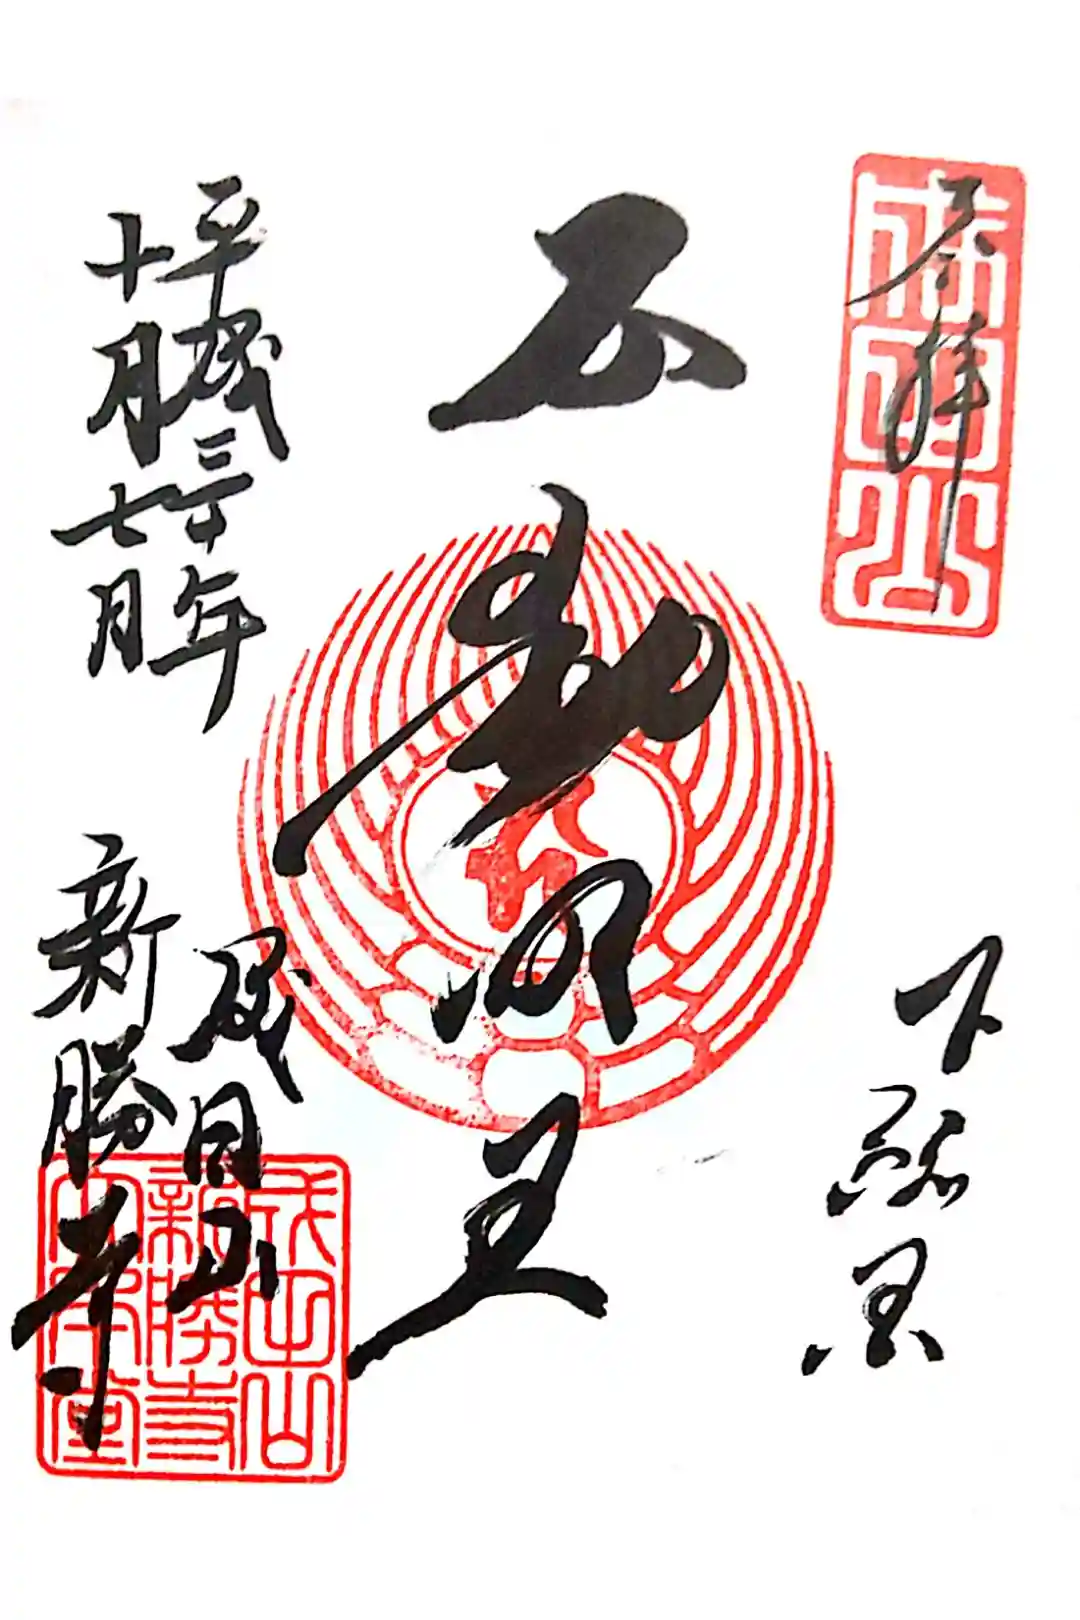 成田山
奉拝
下総国
不動明王
平成三十年
十月七日
成田山
新勝寺
成田山
新勝寺
大本堂